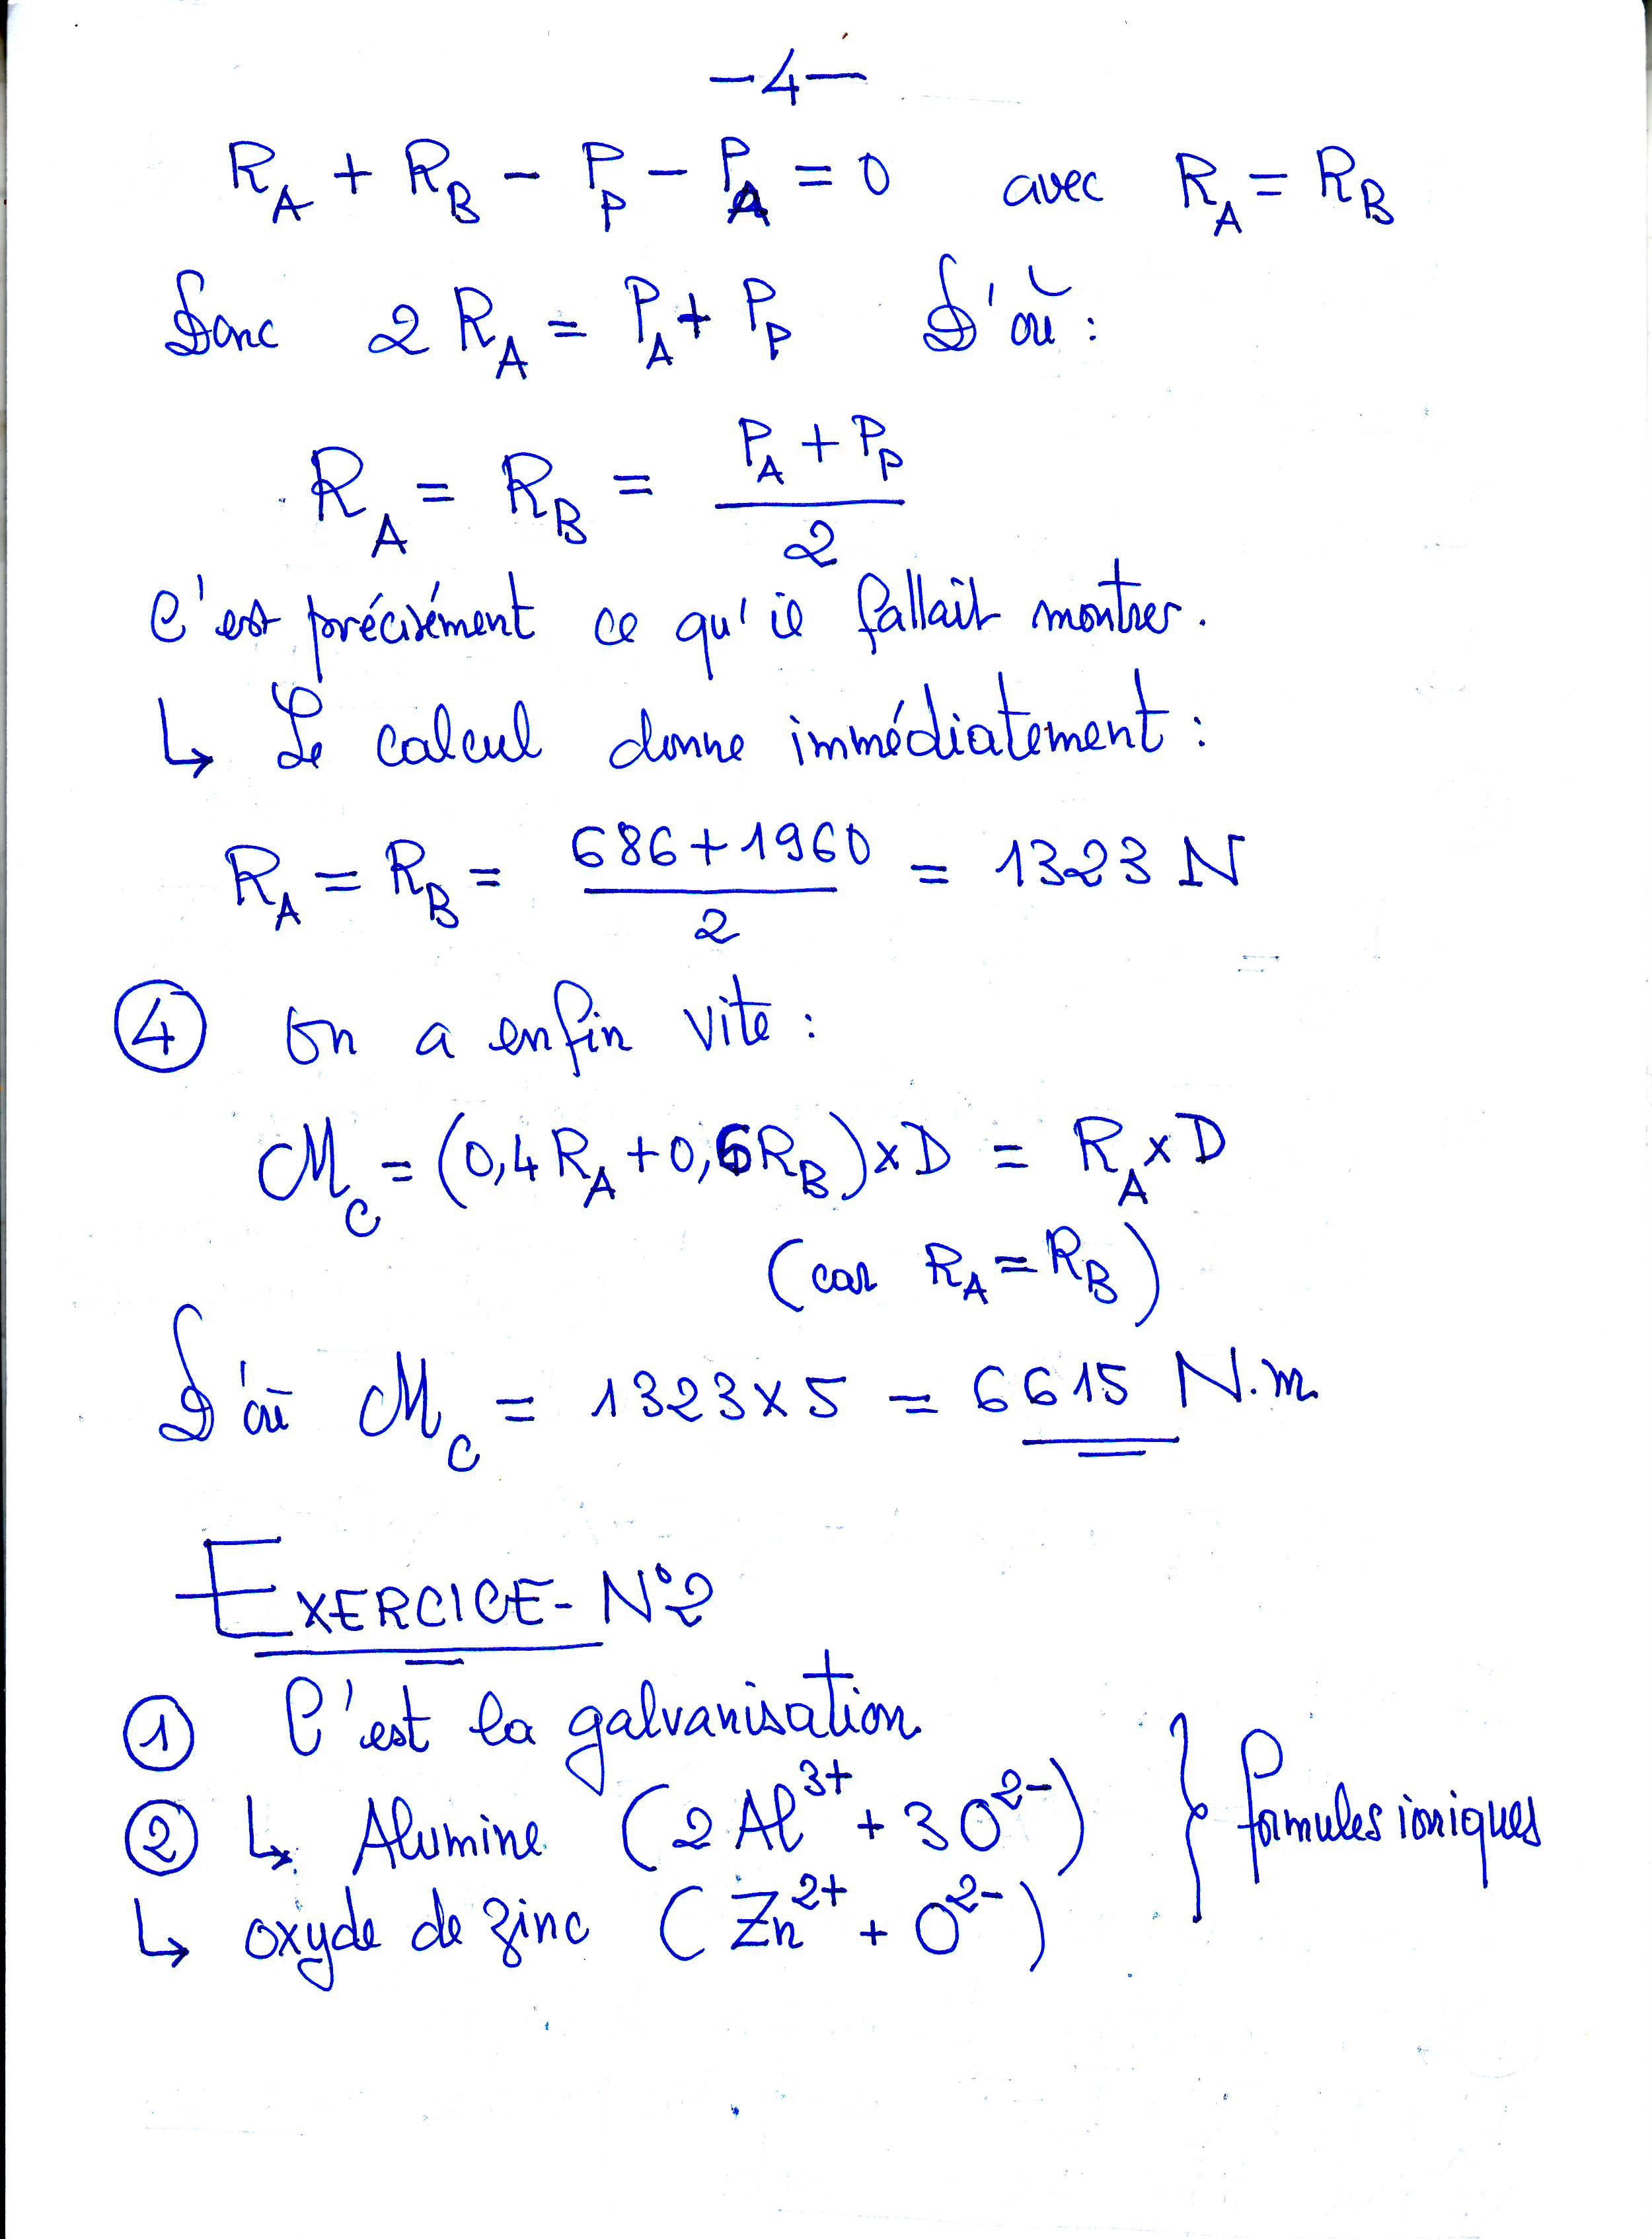 -4-
R_A + R_B - P_P - P_A = 0 avec R_A = R_B
Donc 2 R_A = P_A + P_P D'où :
R_A = R_B = (P_A + P_P) / 2
C'est précisément ce qu'il fallait montrer.
↳ Le calcul donne immédiatement :
R_A = R_B = (686 + 1960) / 2 = 1323 N
④ On a enfin vite :
M_C = (0,4 R_A + 0,6 R_B) × D = R_A × D
(car R_A = R_B)
D'où M_C = 1323 × 5 = 6615 N.m
EXERCICE - N°2
① C'est la galvanisation
② ↳ Alumine (2 Al³⁺ + 3 O²⁻)
↳ oxyde de zinc (Zn²⁺ + O²⁻)
} formules ioniques